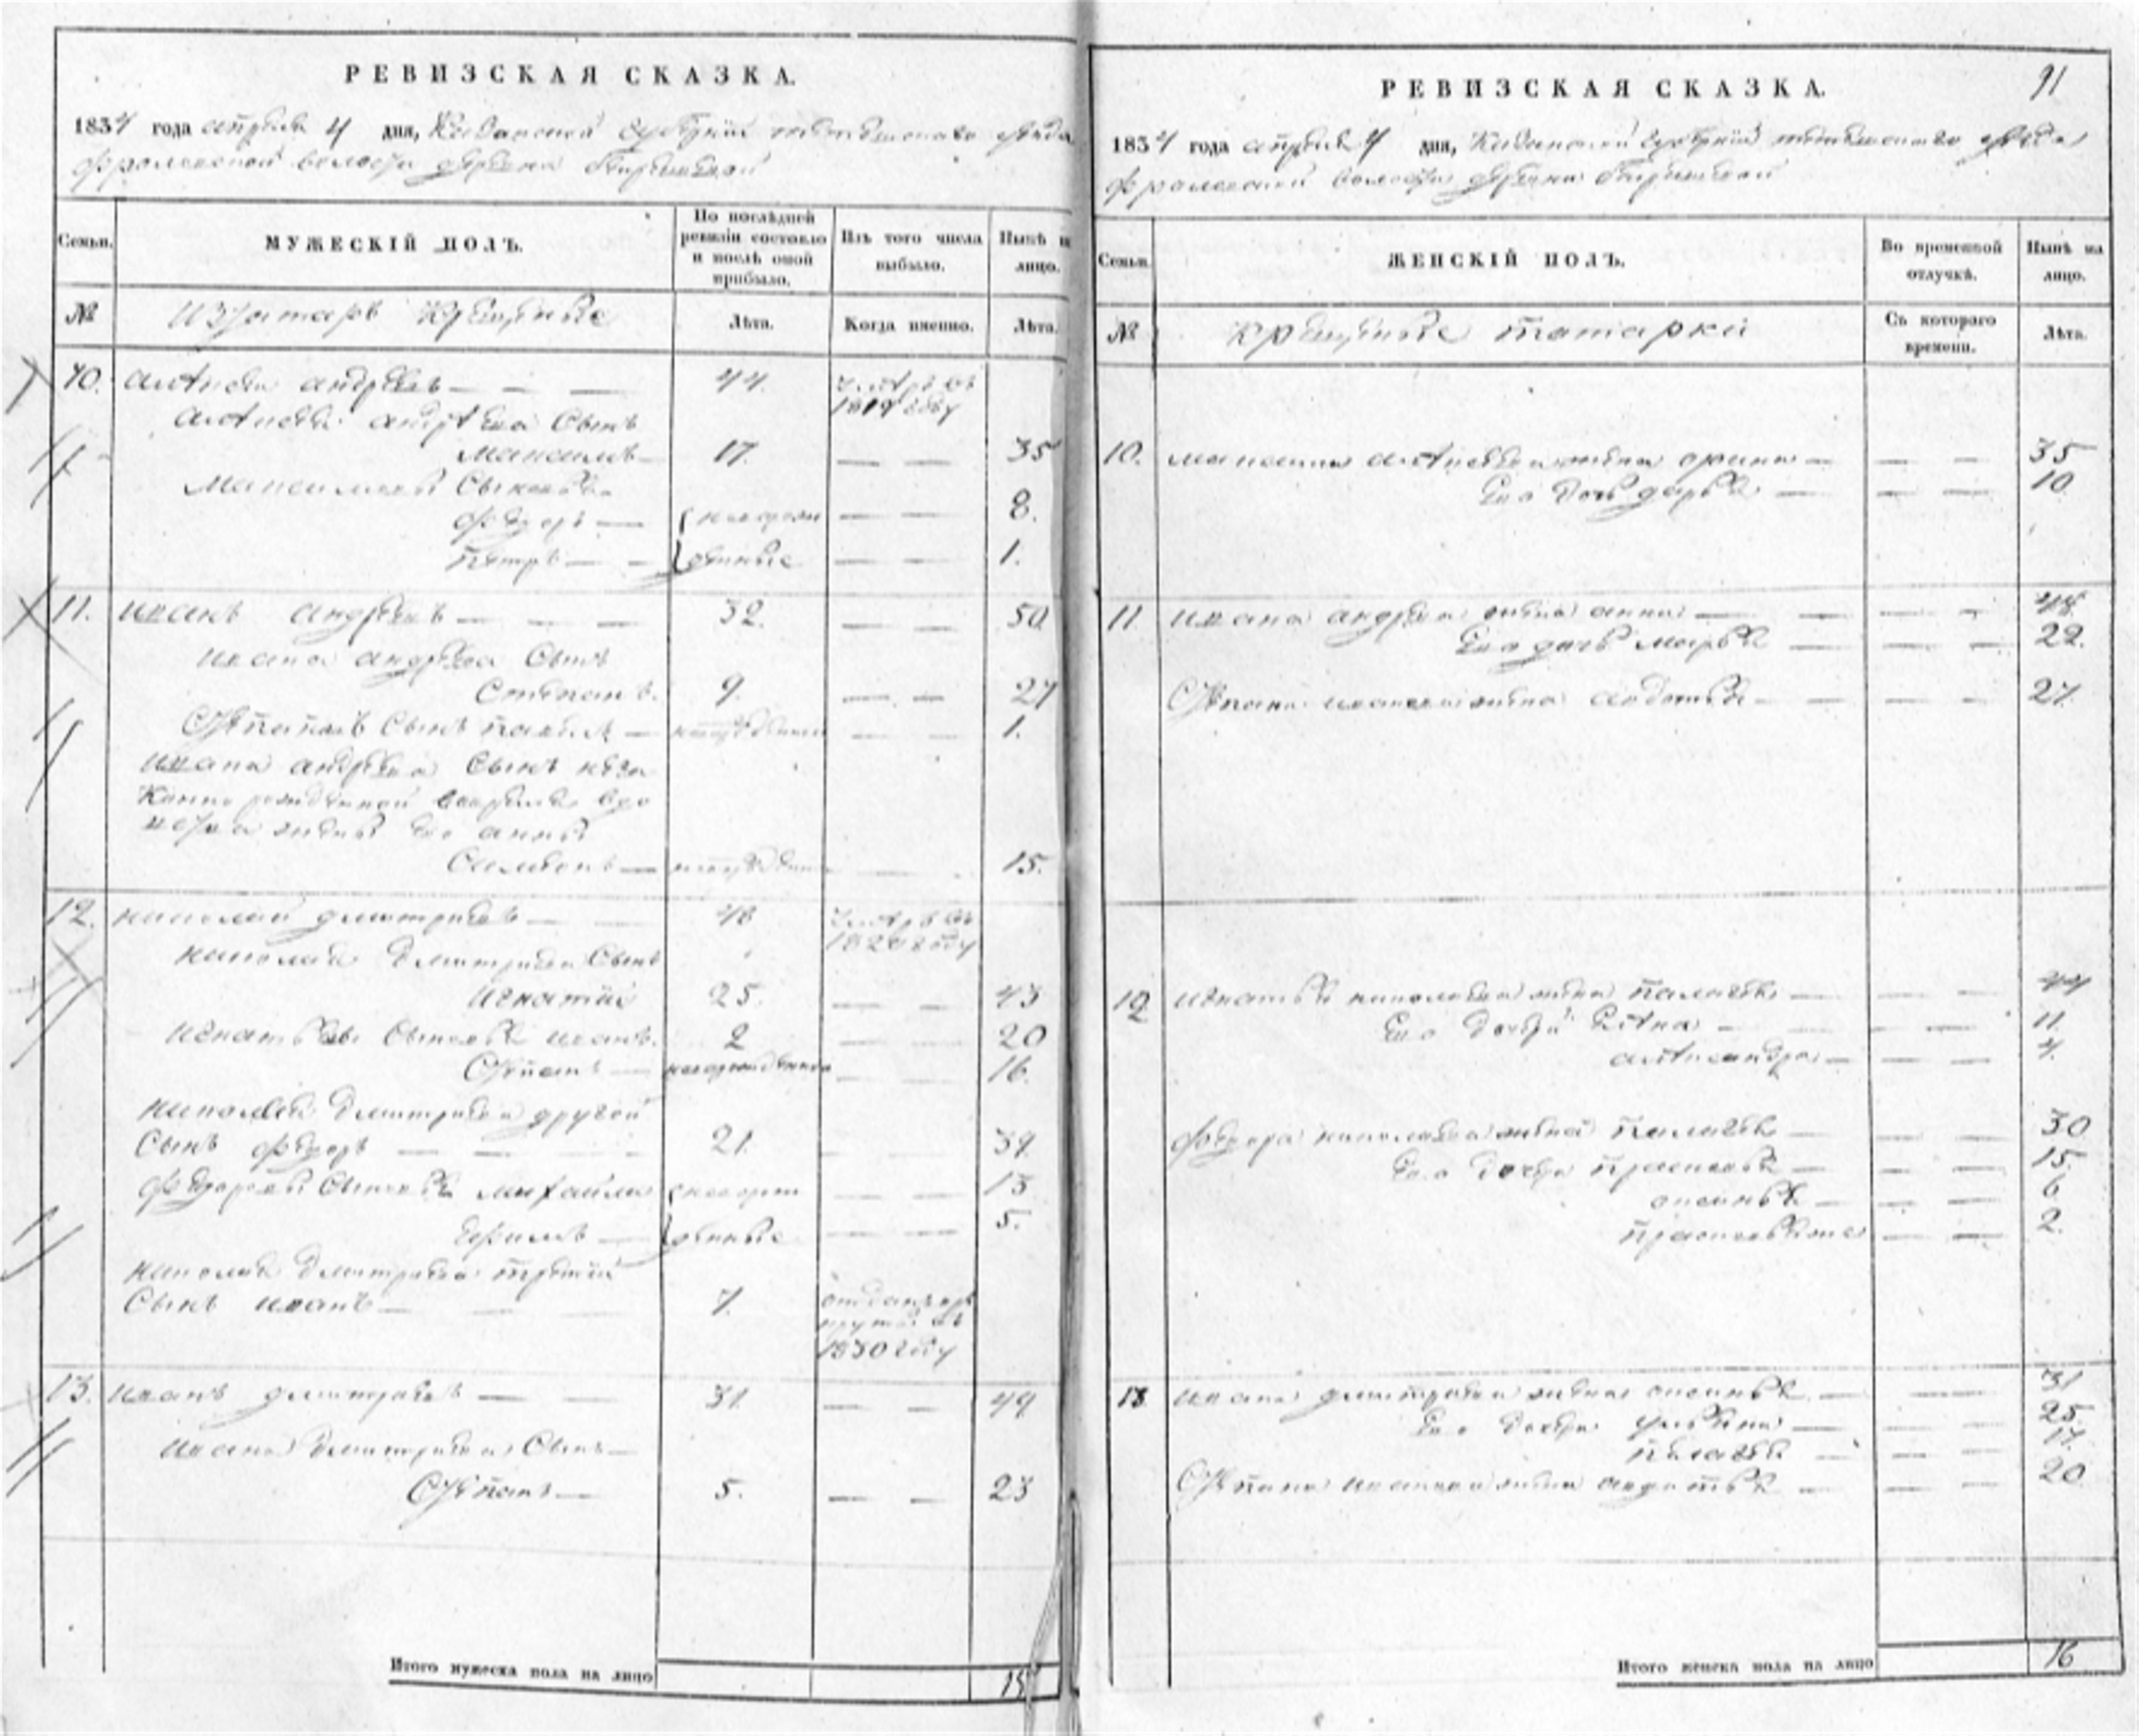 РЕВИЗСКАЯ СКАЗКА.
1834 года апреля 4 дня, Казанской губернии уезда
волости
Семьи. МУЖЕСКІЙ ПОЛЪ. По послѣдней ревизіи состояло и послѣ оной прибыло. Изъ того числа выбыло. Нынѣ на лицо.
№ Изъ татаръ Крещеные Лѣта. Когда именно. Лѣта.
10. Алексей Андреевъ 44. умръ въ 1819 году
Алексея Андреева Сынъ
Максимъ 17. 35
Максимовы Сыновья
Федоръ 8.
Петръ 1.
11. Иванъ Андреевъ 32. 50
Ивана Андреева Сынъ
Степанъ 9. 27
Степановъ Сынъ 1.
Ивана Андреева Сынъ неза
Конно рожденной
жены его Анны
Семенъ 15.
12. Николай Дмитриевъ 48 умръ въ году
Николая Дмитриева Сынъ
Игнатий 25. 43
Игнатьевы Сыновья Иванъ 2 20
Степанъ новорожденной 16.
Николая Дмитриева другой
Сынъ Федоръ 21. 39.
Федоровы Сыновья Михайло 13
Ефимъ 5.
Николая Дмитриева третий
Сынъ Иванъ 7. отданъ въ рекруты въ 1830 году
13. Иванъ Дмитриевъ 31. 49
Ивана Дмитриева Сынъ
Степанъ 5. 23
Итого мужеска пола на лицо 15
91
РЕВИЗСКАЯ СКАЗКА.
1834 года апреля 4 дня, Казанской губернии уезда
волости
Семьи. ЖЕНСКІЙ ПОЛЪ. Во временной отлучкѣ. Нынѣ на лицо.
№ Крещеные татарки Съ котораго времени. Лѣта.
10. Максима Алексеева жена Орина 35
Его дочь Дарья 10
11 Ивана Андреева жена Анна
Его дочь Марья 22.
Степана Иванова жена Авдотья 27.
12 Игнатья Николаева жена Палагея 44
Его дочери Елена 11.
Александра 4.
Федора Николаева жена Палагея 30
Его дочери Прасковья 15.
Оксинья 6
Прасковья же 2.
13 Ивана Дмитриева жена Оксинья 51
Его дочери Ульяна 25.
Палагея 17.
Степана Иванова жена Авдотья 20
Итого женска пола на лицо 16